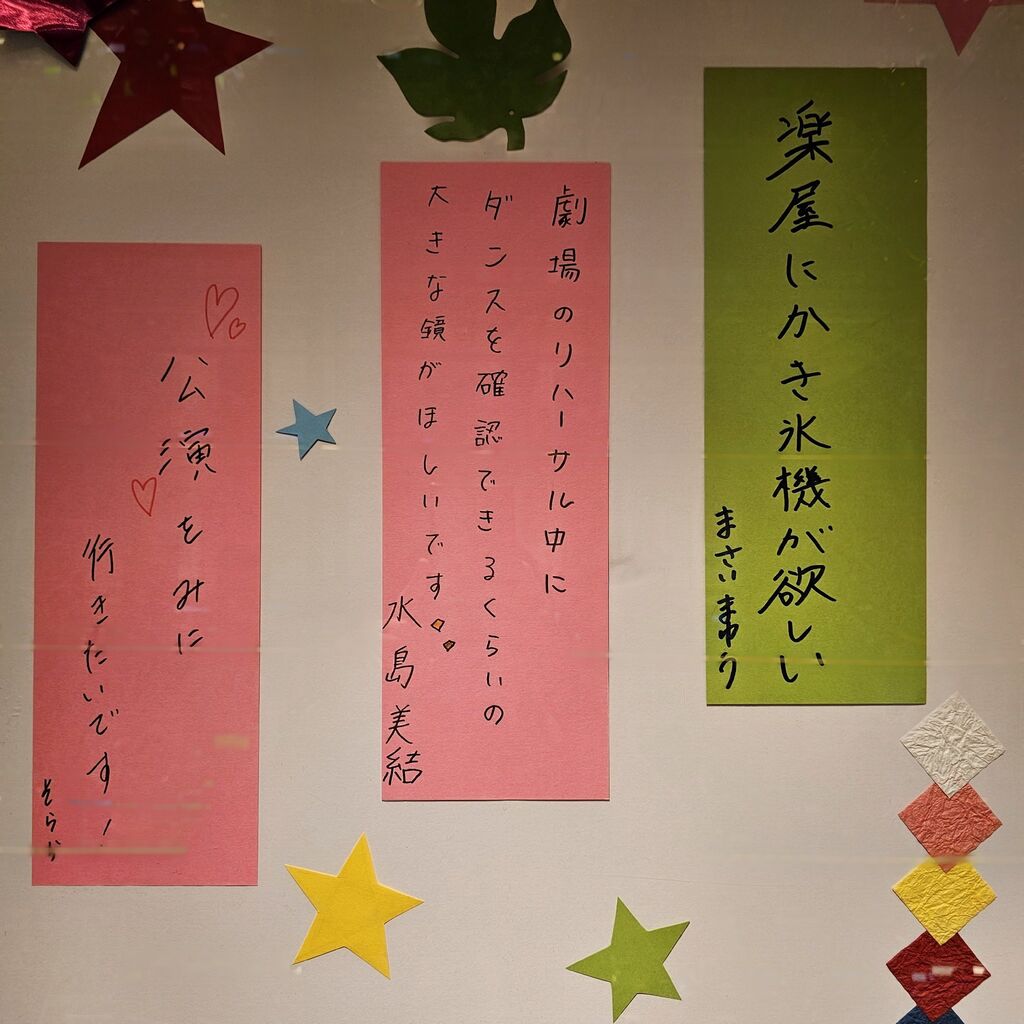 楽屋にかき氷機が欲しい
まさいまゆう
劇場のリハーサル中に
ダンスを確認できるくらいの
大きな鏡がほしいです
水島美結
公演をみに
行きたいです！
そらら